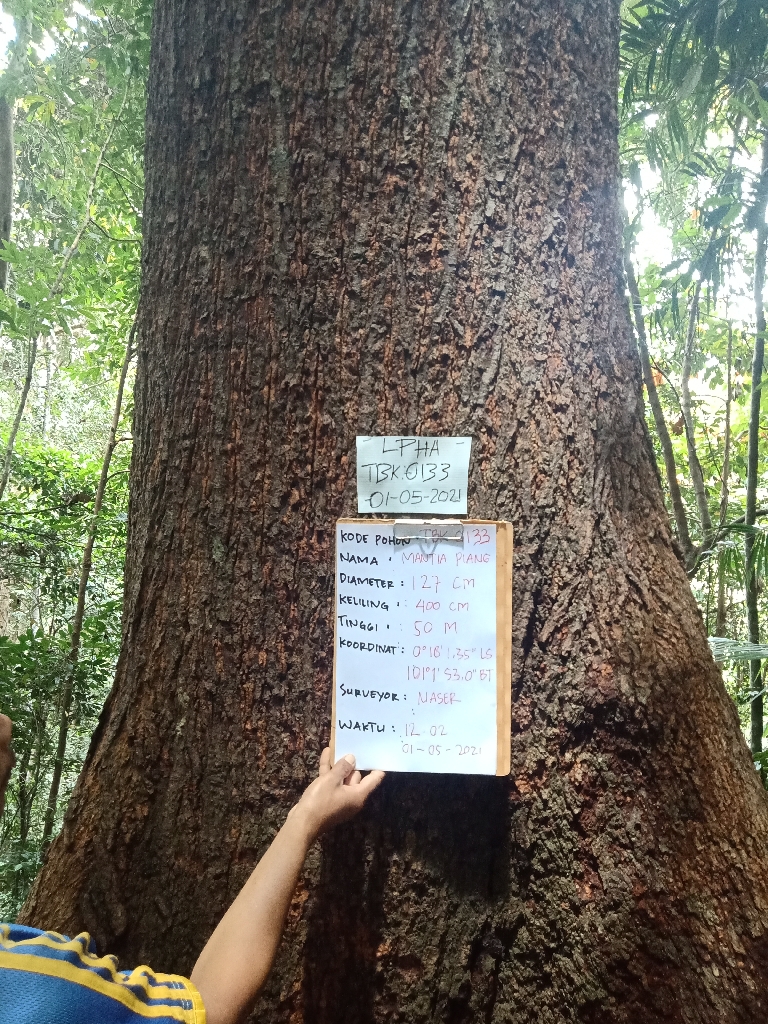 LPHA
TBK.0133
01-05-2021
KODE POHON TBK 0133
NAMA : MANTIA PIANG
DIAMETER : 127 CM
KELILING : 400 CM
TINGGI : 50 M
KOORDINAT : 0°18'1.35" LS
101°1' 53.0" BT
SURVEYOR : NASER
WAKTU : 12.02
01-05-2021